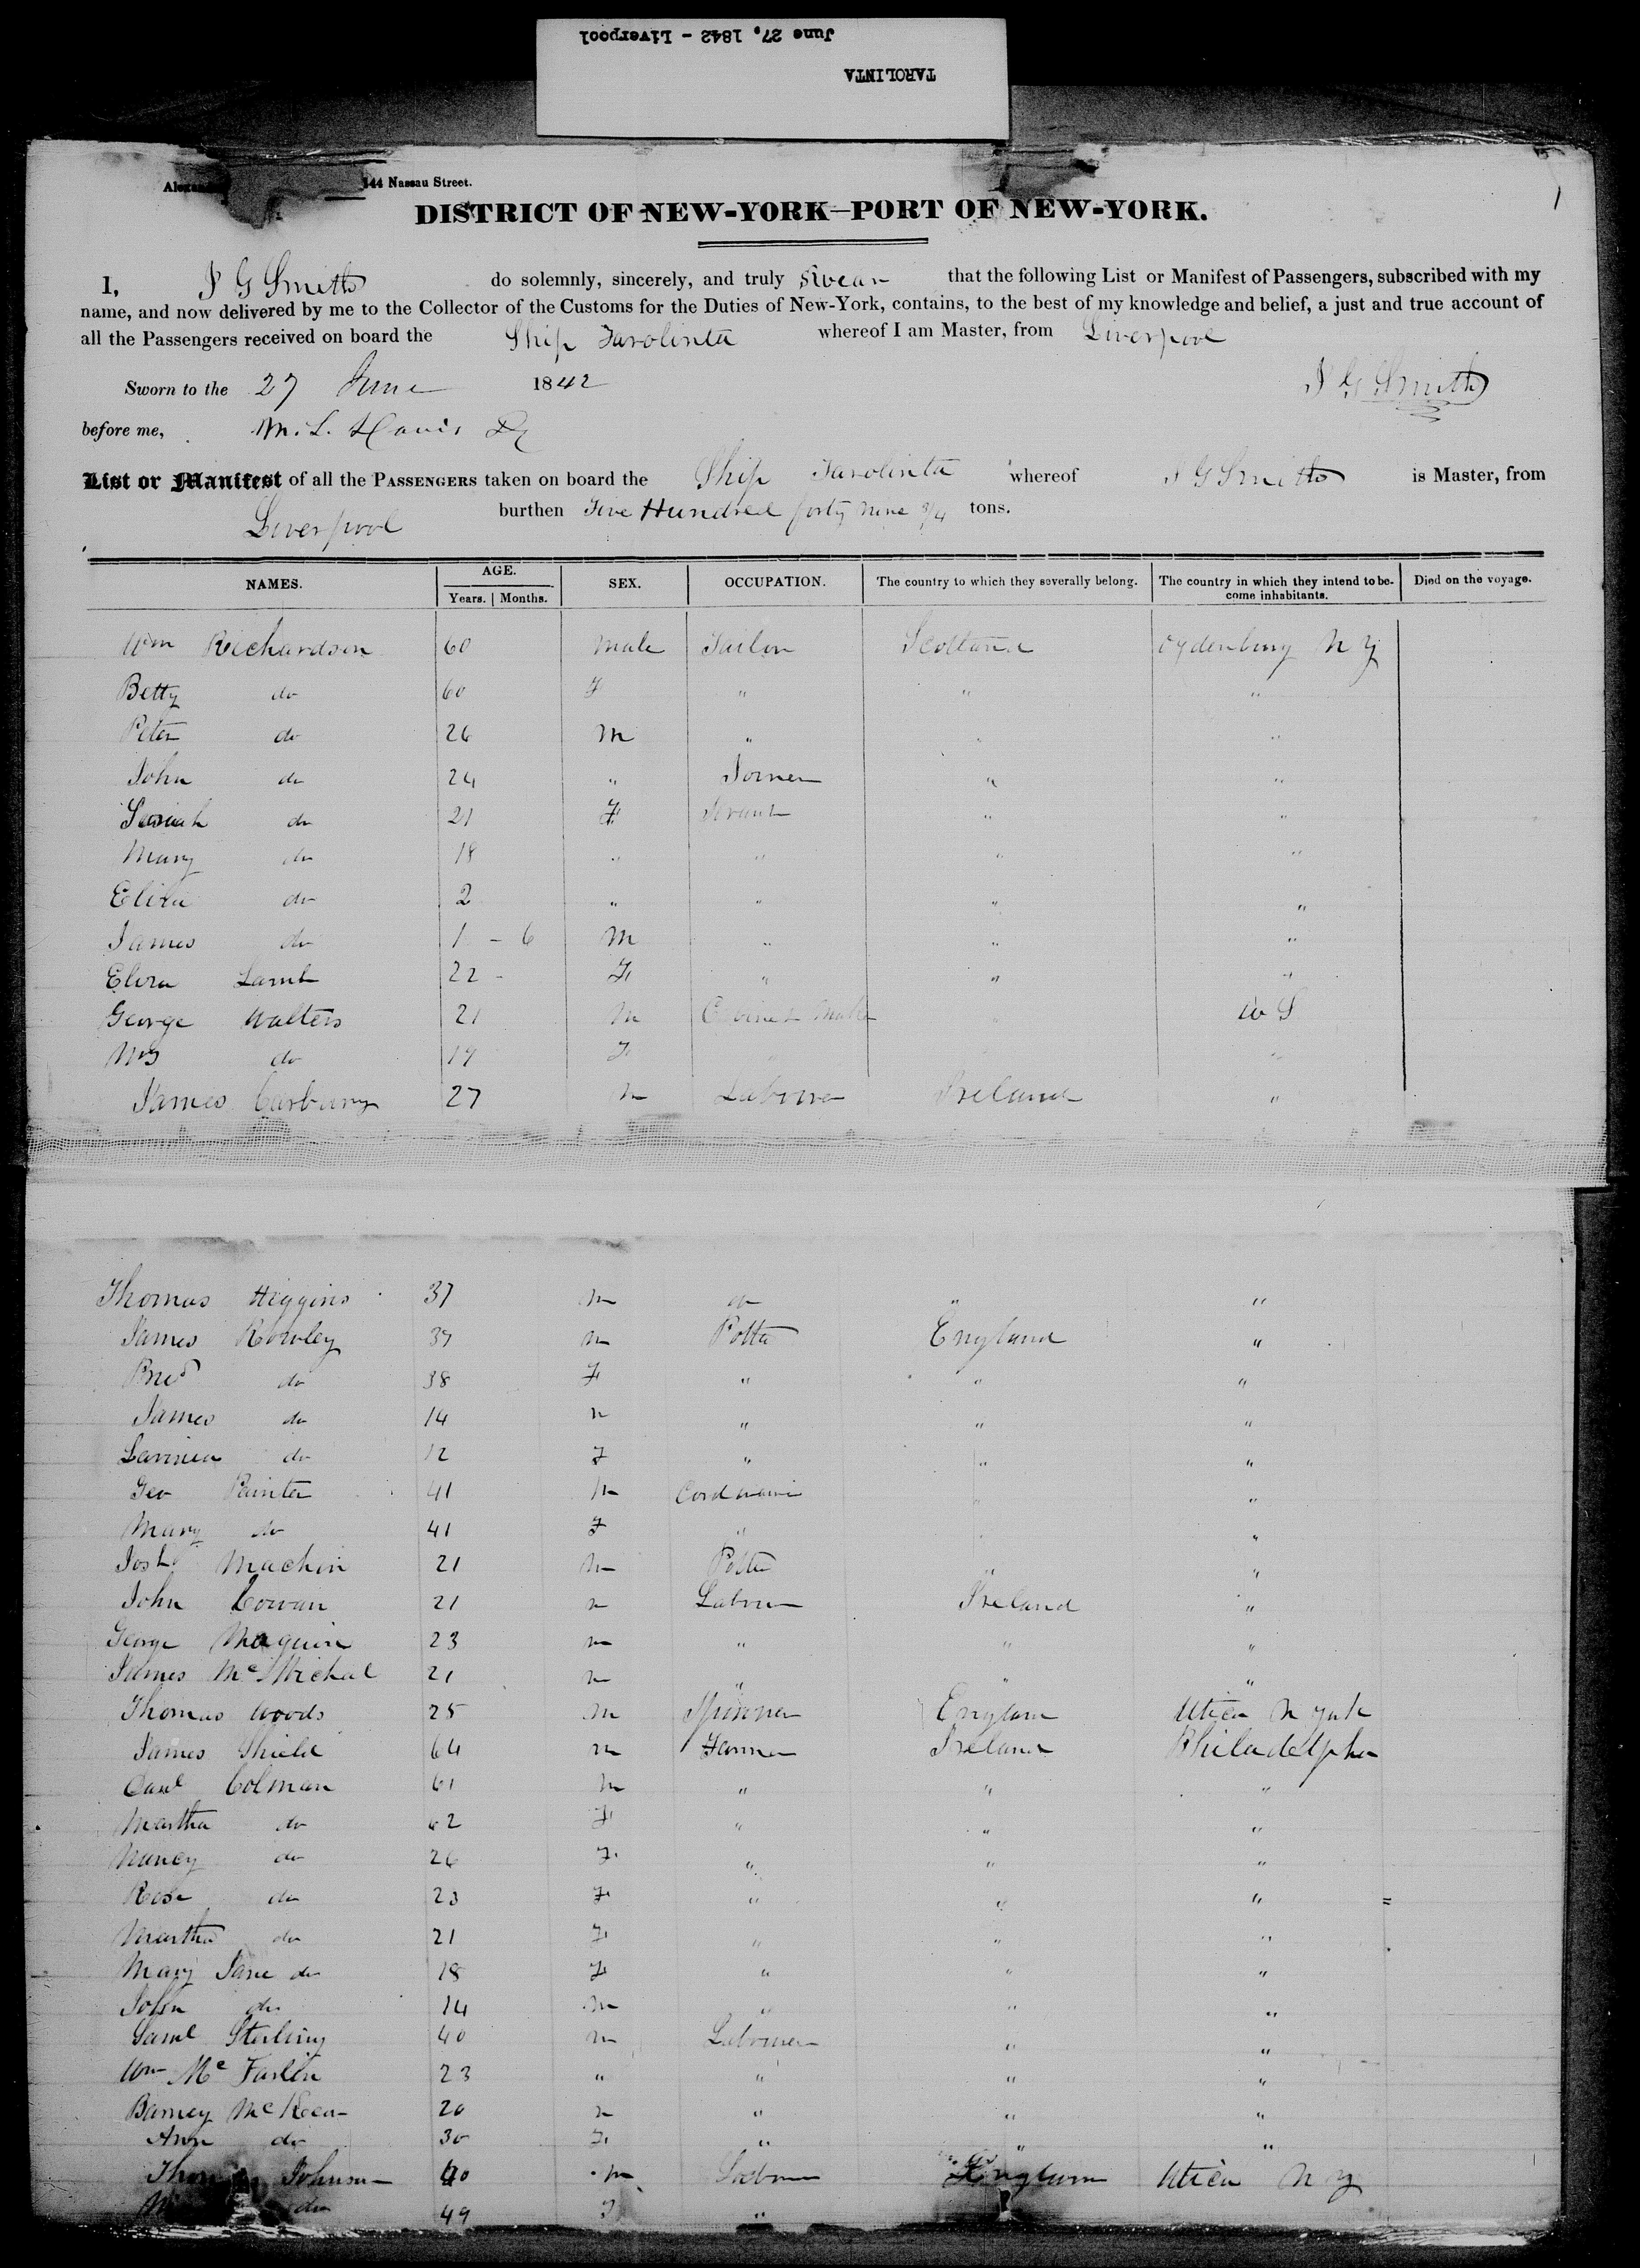 June 27, 1842 - Liverpool
TAROLINTA
144 Nassau Street.
1
DISTRICT OF NEW-YORK—PORT OF NEW-YORK.
I, J G Smith do solemnly, sincerely, and truly swear that the following List or Manifest of Passengers, subscribed with my
name, and now delivered by me to the Collector of the Customs for the Duties of New-York, contains, to the best of my knowledge and belief, a just and true account of
all the Passengers received on board the Ship Tarolinta whereof I am Master, from Liverpool
Sworn to the 27 June 1842 J G Smith
before me, M. L. Davis
List or Manifest of all the PASSENGERS taken on board the Ship Tarolinta whereof J G Smith is Master, from
Liverpool burthen Five Hundred forty nine 3/4 tons.
NAMES. AGE. SEX. OCCUPATION. The country to which they severally belong. The country in which they intend to be- Died on the voyage.
Years. Months. come inhabitants.
Wm Richardson 60 Male Tailor Scotland Ogdenburg N Y
Betty do 60 F " " "
Peter do 26 M " " "
John do 24 " Joiner " "
do 21 F Servant " "
Mary do 18 " " " "
Eliza do 2 " " " "
James do 1 - 6 M " " "
Eliza Lamb 22 - F " " "
George Walters 21 M Cabinet Maker " U S
Mrs do 19 F " " "
James Carbury 27 M Labourer Ireland "
Thomas Higgins 37 M do " "
James Rowley 37 M Potter England "
do 38 F " " "
James do 14 M " " "
Lavinia do 12 F " " "
Geo Painter 41 M Cordwainer " "
Mary do 41 F " " "
Josh Machin 21 M Potter " "
John Cowan 21 M Labourer Ireland "
George Maguire 23 M " " "
James McMichal 21 M " " "
Thomas Woods 25 M Spinner England Utica N York
James Shield 64 M Farmer Ireland Philadelphia
Colman 61 M " " "
Martha do 62 F " " "
Nancy do 26 F " " "
Rose do 23 F " " "
Martha do 21 F " " "
Mary Jane do 18 F " " "
John do 14 M " " "
Saml Sterling 40 M Labourer " "
Wm McFarlin 23 " " " "
Barney McKeen 20 M " " "
Ann do 30 F " " "
Johnson 40 M Labourer England Utica N Y
do 49 F "